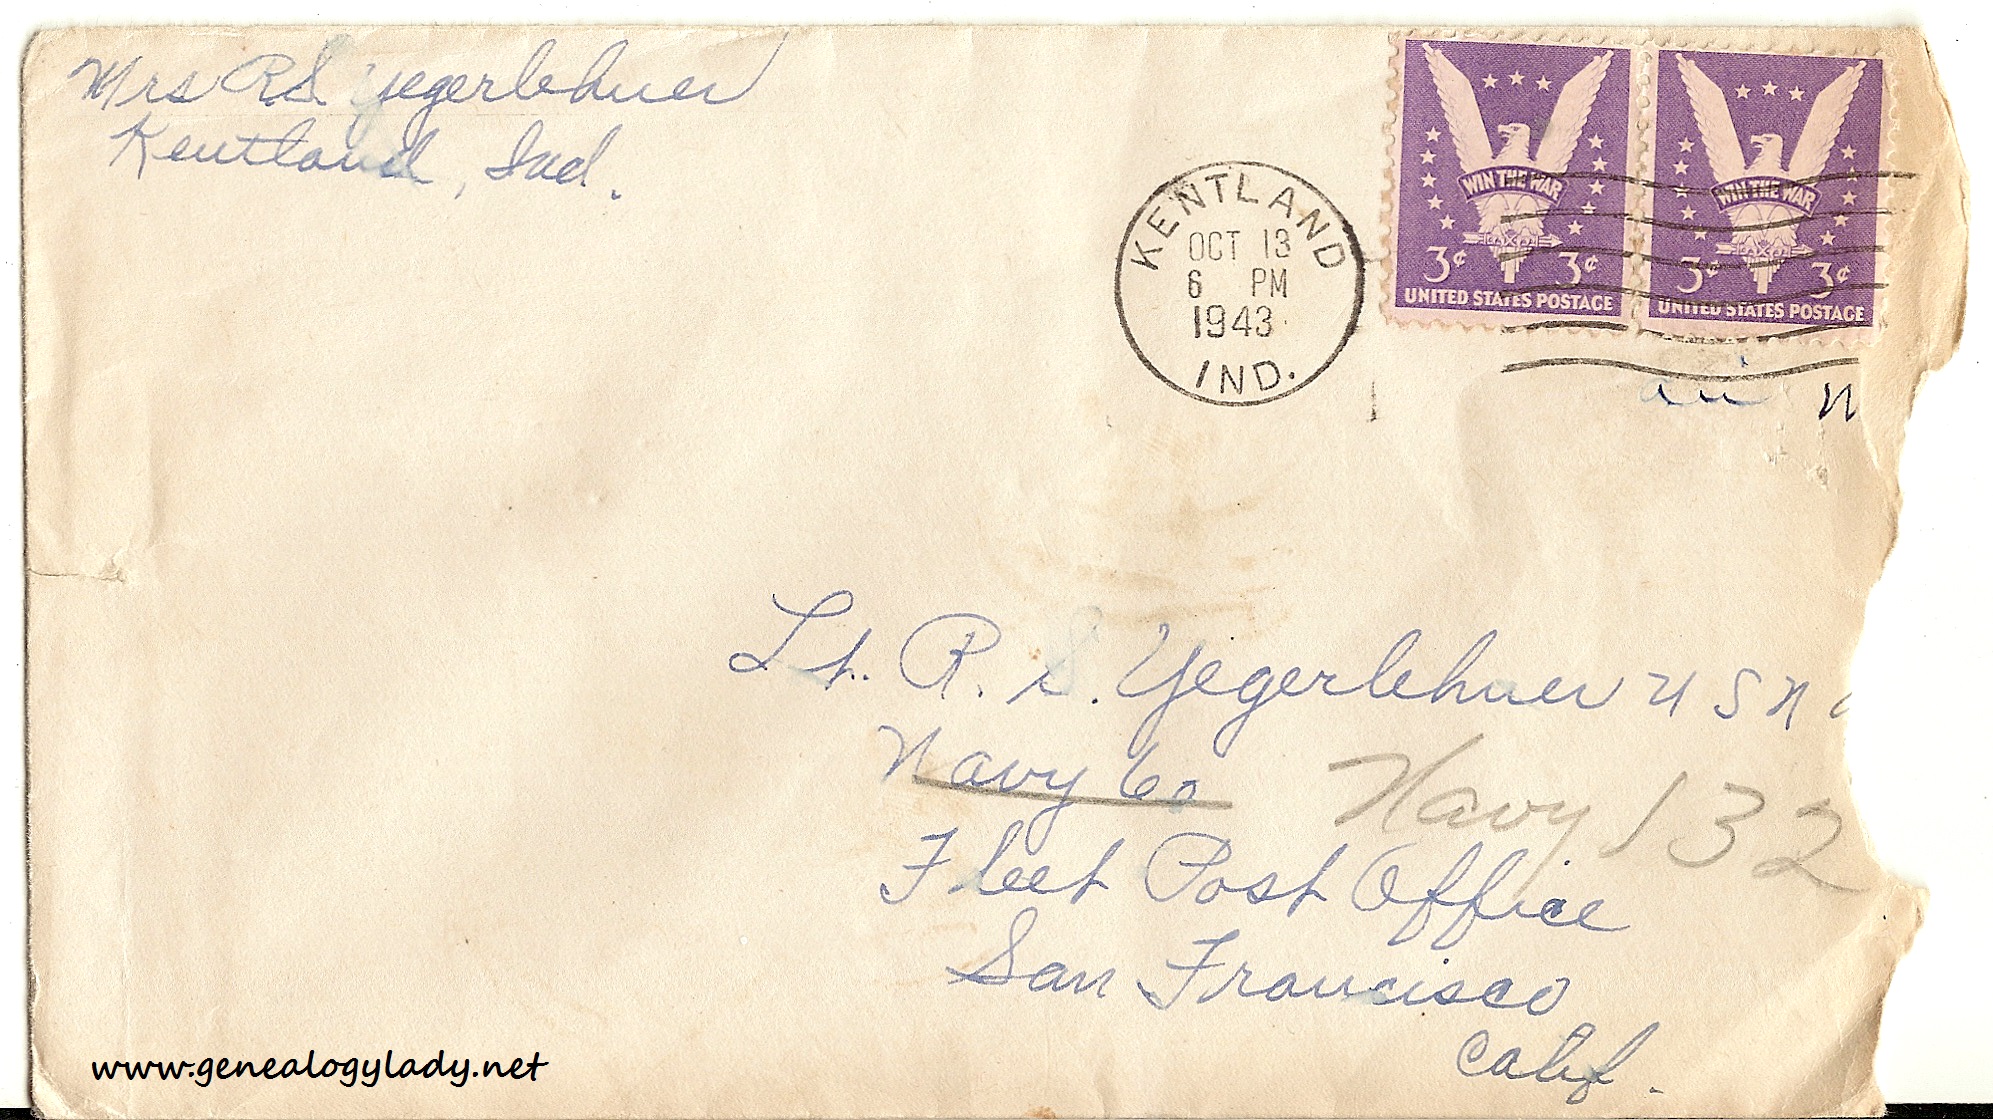 Mrs R.S. Yegerlehner
Kentland, Ind.
KENTLAND
OCT 13
6 PM
1943
IND.
WIN THE WAR
3¢ 3¢
UNITED STATES POSTAGE
WIN THE WAR
3¢ 3¢
UNITED STATES POSTAGE
Lt. R. S. Yegerlehner USN
Navy 60 Navy 132
Fleet Post Office
San Francisco
Calif.
www.genealogylady.net